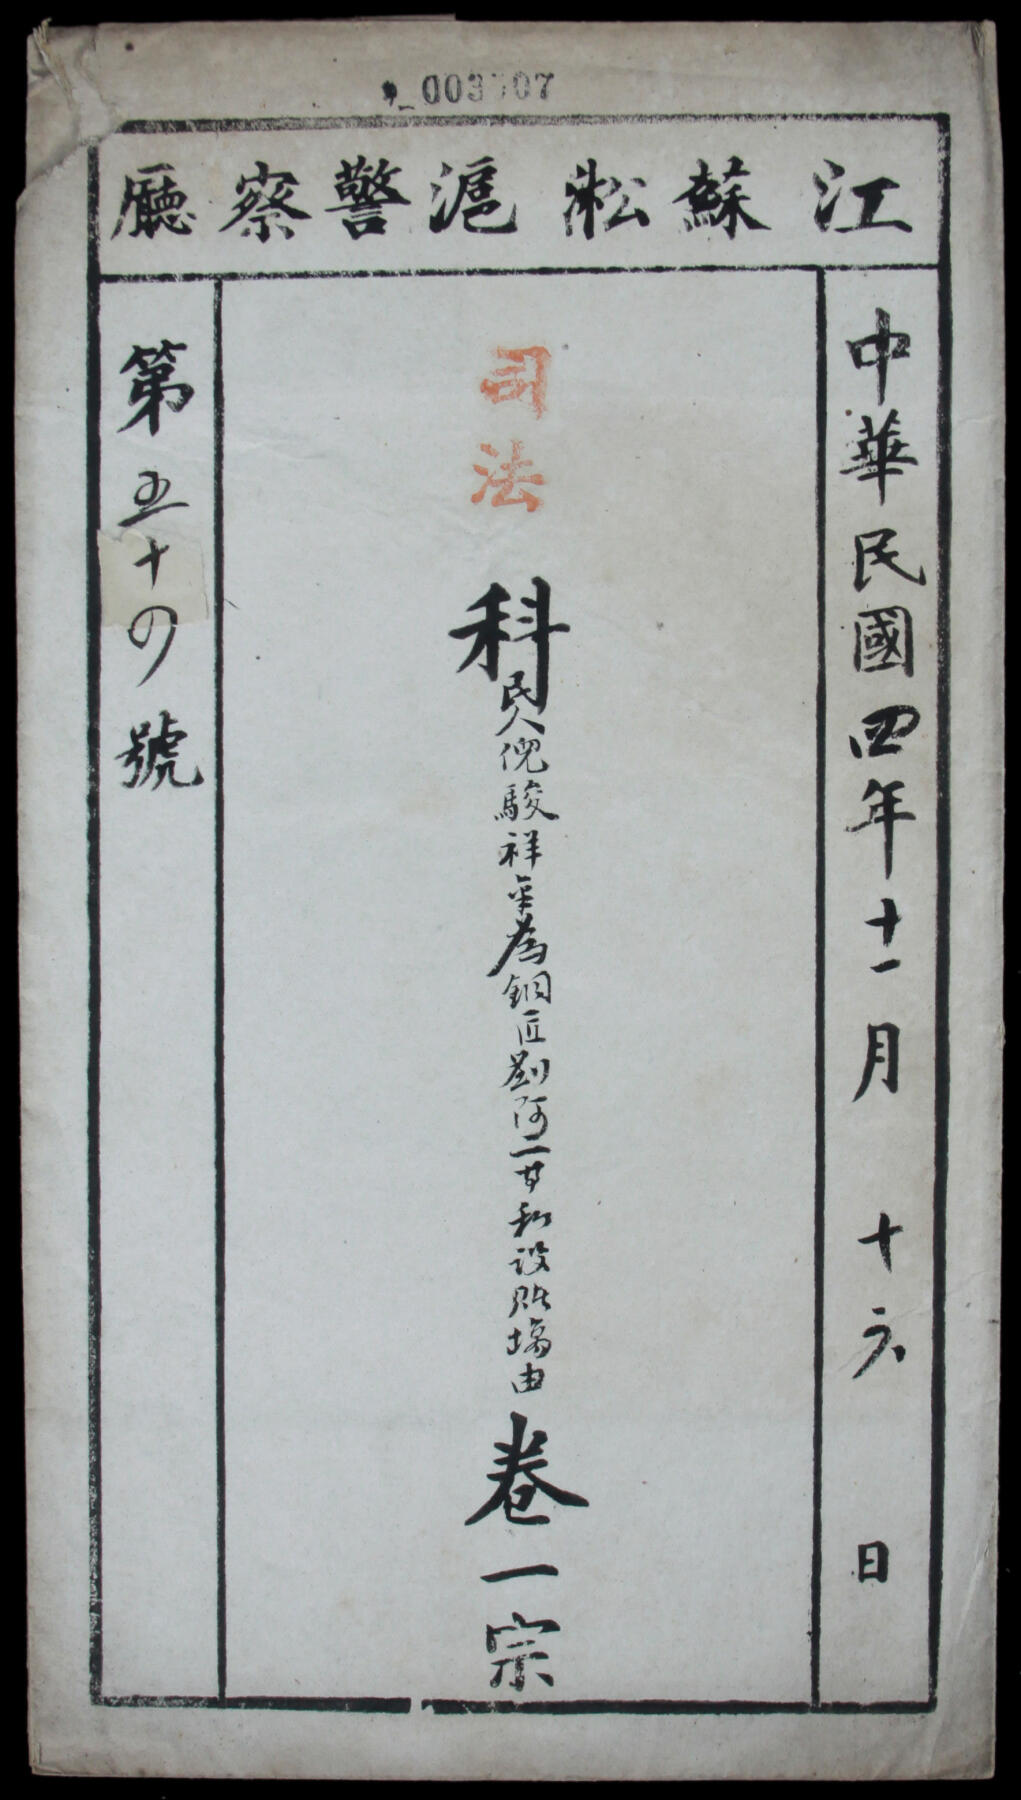 003507
江蘇淞滬警察廳
中華民國四年十一月十六日
司法科民人倪駿祥為銅匠劉阿二等私設賭場由卷一宗
第五十四號